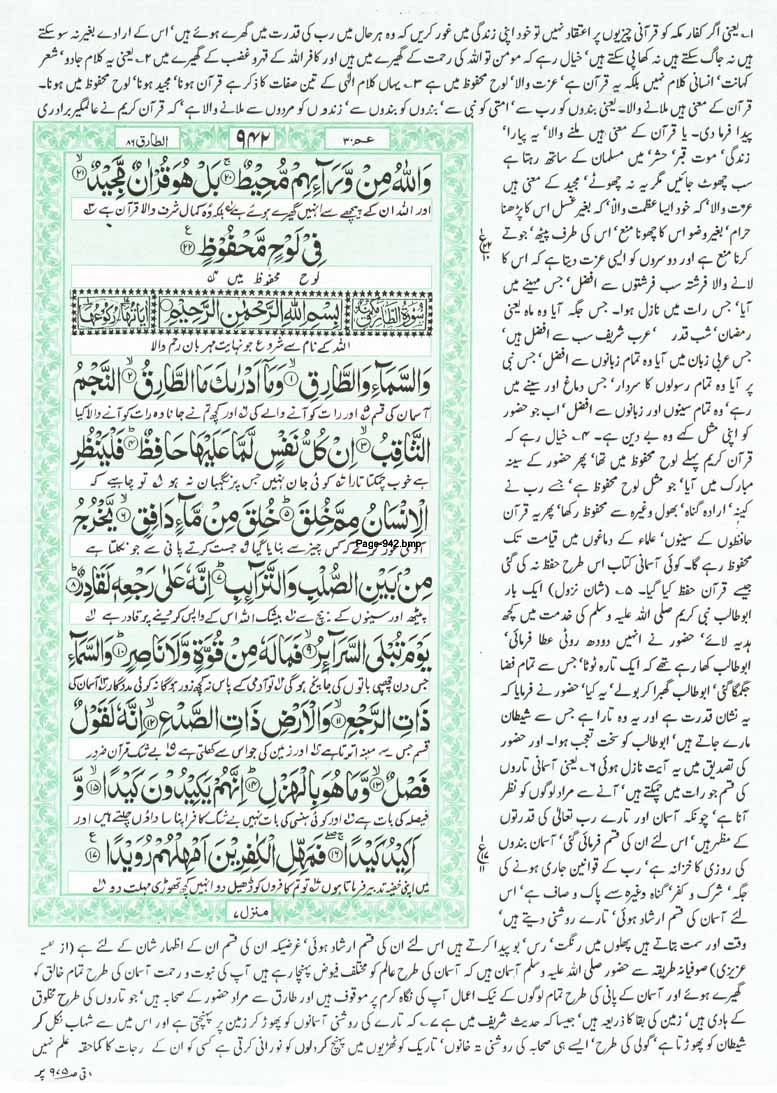 ۱۔ یعنی اگر کفار مکہ کو قرآنی چیزوں پر اعتقاد نہیں تو خود اپنی زندگی میں غور کریں کہ وہ ہر حال میں رب کی قدرت میں گھرے ہوئے ہیں' اس کے ارادے بغیر نہ سو سکتے
ہیں نہ جاگ سکتے ہیں نہ کھا پی سکتے ہیں' خیال رہے کہ مومن تو اللہ کی رحمت کے گھیرے میں ہیں اور کافر اللہ کے قہر و غضب کے گھیرے میں ۲۔ یعنی یہ کلام جادو' شعر
کہانت' انسانی کلام نہیں بلکہ یہ قرآن ہے' عزت والا' لوح محفوظ میں ہے ۳۔ یہاں کلام الٰہی کے تین صفات کا ذکر ہے قرآن ہونا' مجید ہونا' لوح محفوظ میں ہونا۔
قرآن کے معنی ہیں ملانے والا۔ یعنی بندوں کو رب سے' امتی کو نبی سے' بندوں کو بندوں سے' زندوں کو مردوں سے ملانے والا ہے' کہ قرآن کریم نے عالمگیر برادری
عـم ۳۰
۹۴۲
الطارق ۸۶
وَّاللّٰهُ مِنْ وَّرَآىِٕهِمْ مُّحِیْطٌ ۲۰ بَلْ هُوَ قُرْاٰنٌ مَّجِیْدٌ ۲۱
اور اللہ ان کے پیچھے سے انہیں گھیرے ہوئے ہے بلکہ وہ کمال شرف والا قرآن ہے
فِیْ لَوْحٍ مَّحْفُوْظٍ ۲۲
لوح محفوظ میں
سُوْرَةُ الطَّارِقِ مَكِّیَّةٌ
بِسْمِ اللّٰهِ الرَّحْمٰنِ الرَّحِیْمِ
اللہ کے نام سے شروع جو نہایت مہربان رحم والا
وَالسَّمَآءِ وَالطَّارِقِ ۱ وَمَاۤ اَدْرٰىكَ مَا الطَّارِقُ ۲ النَّجْمُ
آسمان کی قسم اور رات کو آنے والے کی اور کچھ تم نے جانا وہ رات کو آنے والا کیا
الثَّاقِبُ ۳ اِنْ كُلُّ نَفْسٍ لَّمَّا عَلَیْهَا حَافِظٌ ۴ فَلْیَنْظُرِ
ہے خوب چمکتا تارا کوئی جان نہیں جس پر نگہبان نہ ہو تو چاہیے کہ
الْاِنْسَانُ مِمَّ خُلِقَ ۵ خُلِقَ مِنْ مَّآءٍ دَافِقٍ ۶ یَّخْرُجُ
آدمی غور کرے کہ کس چیز سے بنایا گیا جست کرتے پانی سے جو نکلتا ہے
Page-942.bmp
مِنْۢ بَیْنِ الصُّلْبِ وَالتَّرَآىِٕبِ ۷ اِنَّهٗ عَلٰی رَجْعِهٖ لَقَادِرٌ ۸
پیٹھ اور سینوں کے بیچ سے بیشک اللہ اس کے واپس کر دینے پر قادر ہے
یَوْمَ تُبْلَی السَّرَآىِٕرُ ۹ فَمَا لَهٗ مِنْ قُوَّةٍ وَّلَا نَاصِرٍ ۱۰ وَالسَّمَآءِ
جس دن چھپی باتوں کی جانچ ہوگی تو آدمی کے پاس نہ کچھ زور ہوگا نہ کوئی مددگار آسمان کی
ذَاتِ الرَّجْعِ ۱۱ وَالْاَرْضِ ذَاتِ الصَّدْعِ ۱۲ اِنَّهٗ لَقَوْلٌ
قسم جس سے مینہ اترتا ہے اور زمین کی جو اس سے کھلتی ہے بے شک قرآن ضرور
فَصْلٌ ۱۳ وَّمَا هُوَ بِالْهَزْلِ ۱۴ اِنَّهُمْ یَكِیْدُوْنَ كَیْدًا ۱۵ وَّ
فیصلہ کی بات ہے اور کوئی ہنسی کی بات نہیں بے شک کافر اپنا سا داؤں چلتے ہیں اور
اَكِیْدُ كَیْدًا ۱۶ فَمَهِّلِ الْكٰفِرِیْنَ اَمْهِلْهُمْ رُوَیْدًا ۱۷
میں اپنی خفیہ تدبیر فرماتا ہوں تو تم کافروں کو ڈھیل دو انہیں کچھ تھوڑی مہلت دو
منزل ۷
پیدا فرما دی۔ یا قرآن کے معنی ہیں ملنے والا' یہ پیارا'
زندگی' موت قبر' حشر' میں مسلمان کے ساتھ رہتا ہے
سب چھوٹ جائیں مگر یہ نہ چھوٹے' مجید کے معنی ہیں
عزت والا' کہ خود ایسا عظمت والا' کہ بغیر غسل اس کا پڑھنا
حرام' بغیر وضو اس کا چھونا منع' اس کی طرف پیٹھ' جوتے
کرنا منع ہے اور دوسروں کو ایسی عزت دیتا ہے کہ اس کا
لانے والا فرشتہ سب فرشتوں سے افضل' جس مہینے میں
آیا' جس رات میں نازل ہوا۔ جس جگہ آیا وہ ماہ یعنی
رمضان' شب قدر ' عرب شریف سب سے افضل ہیں'
جس عربی زبان میں آیا وہ تمام زبانوں سے افضل' جس نبی
پر آیا وہ تمام رسولوں کا سردار' جس دماغ اور سینے میں
رہے' وہ تمام سینوں اور زبانوں سے افضل' اب جو حضور
کو اپنی مثل کہے وہ بے دین ہے۔ ۴۔ خیال رہے کہ
قرآن کریم پہلے لوح محفوظ میں تھا' پھر حضور کے سینہ
مبارک میں آیا' جو مثل لوح محفوظ ہے' جسے رب نے
کینہ' ارادہ گناہ' بھول وغیرہ سے محفوظ رکھا' پھر یہ قرآن
حافظوں کے سینوں' علماء کے دماغوں میں قیامت تک
محفوظ رہے گا۔ کوئی آسمانی کتاب اس طرح حفظ نہ کی گئی
جیسے قرآن حفظ کیا گیا۔ ۵۔ (شان نزول) ایک بار
ابوطالب نبی کریم صلی اللہ علیہ وسلم کی خدمت میں کچھ
ہدیہ لائے' حضور نے انہیں دودھ روٹی عطا فرمائی'
ابوطالب کھا رہے تھے کہ ایک تارہ ٹوٹا' جس سے تمام فضا
جگمگا گئی' ابوطالب گھبرا کر بولے' یہ کیا' حضور نے فرمایا کہ
یہ نشان قدرت ہے اور یہ وہ تارا ہے جس سے شیطان
مارے جاتے ہیں' ابوطالب کو سخت تعجب ہوا۔ اور حضور
کی تصدیق میں یہ آیت نازل ہوئی ۶۔ یعنی آسمانی تاروں
کی قسم جو رات میں چمکتے ہیں' آنے سے مراد لوگوں کو نظر
آنا ہے' چونکہ آسمان اور تارے رب تعالٰی کی قدرتوں
کے مظہر ہیں' اس لئے ان کی قسم فرمائی گئی' آسمان بندوں
کی روزی کا خزانہ ہے' رب کے قوانین جاری ہونے کی
جگہ' شرک و کفر' گناہ وغیرہ سے پاک و صاف ہے' اس
لئے آسمان کی قسم ارشاد ہوئی' تارے روشنی دیتے ہیں'
وقت اور سمت بتاتے ہیں پھلوں میں رنگت' رس' بو پیدا کرتے ہیں اس لئے ان کی قسم ارشاد ہوئی' غرضیکہ ان کی قسم ان کے اظہار شان کے لئے ہے (از تفسیر
عزیزی) صوفیانہ طریقہ سے حضور صلی اللہ علیہ وسلم آسمان ہیں کہ آسمان کی طرح عالم کو مختلف فیوض پہنچا رہے ہیں آپ کی نبوت و رحمت آسمان کی طرح تمام خالق کو
گھیرے ہوئے اور آسمان کے پانی کی طرح تمام لوگوں کے نیک اعمال آپ کی نگاہ کرم پر موقوف ہیں اور طارق سے مراد حضور کے صحابہ ہیں' جو تاروں کی طرح مخلوق
کے ہادی ہیں' زمین کی بقا کا ذریعہ ہیں' جیسا کہ حدیث شریف میں ہے ۷۔ کہ تارے کی روشنی آسمانوں کو پھوڑ کر زمین پر پہنچتی ہے اور اس میں سے شہاب نکل کر
شیطان کو پھوڑتا ہے' گولی کی طرح' ایسے ہی صحابہ کی روشنی تہ خانوں' تاریک کوٹھڑیوں میں پہنچ کر دلوں کو نورانی کرتی ہے کسی کو ان کے درجات کا کماحقہ علم نہیں
باقی صـ ۹۷۵ پر